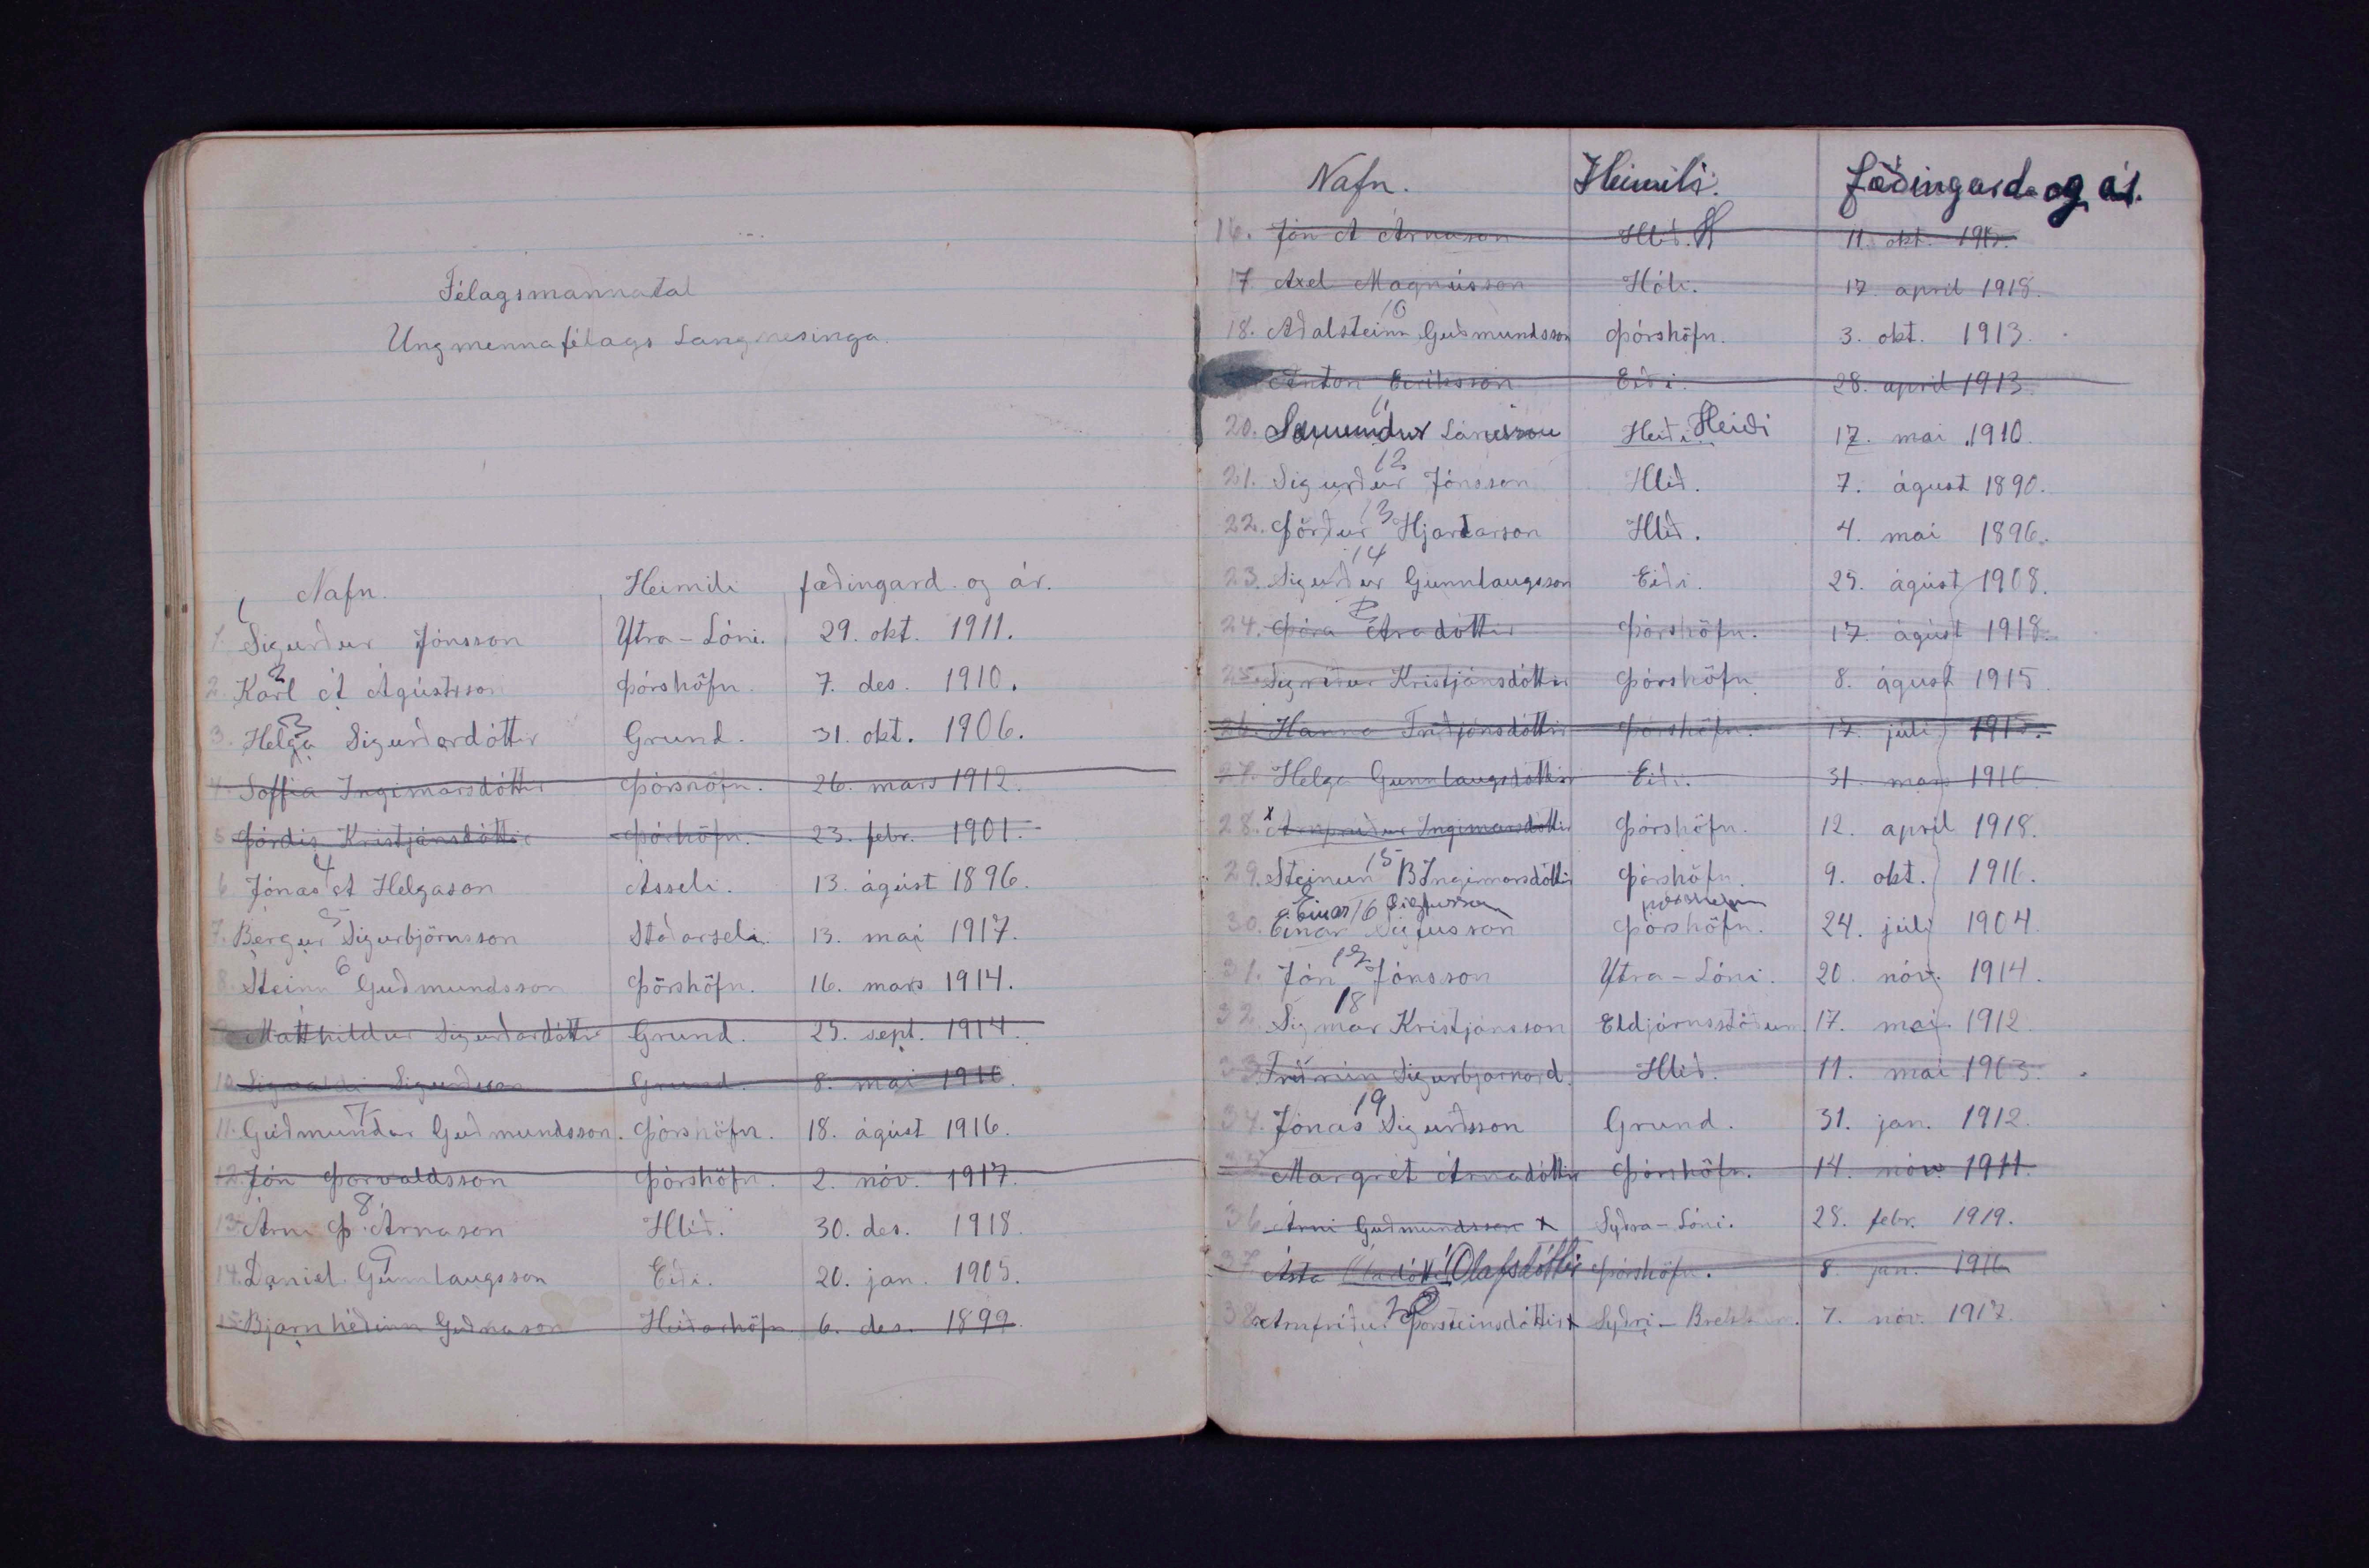 Félagsmannatal
Ungmennafélags Langnesinga.
Nafn. Heimili fæðingard. og ár.
1. 1 Sigurður Jónsson Ytra-Lóni. 29. okt. 1911.
2. 2 Karl Á Ágústsson Þórshöfn. 7. des. 1910.
3. 3 Helga Sigurðardóttir Grund. 31. okt. 1906.
4. Soffia Ingimarsdóttir Þórshöfn. 26. mars 1912.
5 Þórdís Kristjánsdóttir Þórshöfn. 23. febr. 1901.
6. 4 Jónas A Helgason Ásseli. 13. ágúst 1896.
7. 5 Bergur Sigurbjörnsson Stóðarseli. 13. mai 1917.
8. 6 Steinn Guðmundsson Þórshöfn. 16. mars 1914.
Matthildur Sigurðardóttir Grund. 25. sept. 1914.
10. Sigvaldi Sigurðsson Grund. 8. mai 1910.
11. 7 Guðmundur Guðmundsson. Þórshöfn. 18. ágúst 1916.
12. Jón Þorvaldsson Þórshöfn. 2. nóv. 1917.
13 8 Árni Þ. Árnason Hlíð. 30. des. 1918.
14. 9 Daníel Gunnlaugsson Eiði. 20. jan. 1905.
15 Bjarnhéðinn Guðnason Heiðarhöfn 6. des. 1899.
Nafn. Heimili. fæðingard. og ár.
16. Jón A Árnason Hlíð. 11. okt.
17. Axel Magnússon Hóli. 17. april 1918.
18. 10 Aðalsteinn Guðmundsson Þórshöfn. 3. okt. 1913.
Anton Eiríksson Eiði. 28. april 1913.
20. 11 Sæmundur Lárusson Heiði Heiði 17. mai 1910.
21. 12 Sigurður Jónsson Hlíð. 7. ágúst 1890.
22. 13 Þórður Hjartarson Hlíð. 4. mai 1896.
23. 14 Sigurður Gunnlaugsson Eiði. 25. ágúst 1908.
24. Þóra Aradóttir Þórshöfn. 17. ágúst 1918.
25. Sigríður Kristjánsdóttir Þórshöfn 8. ágúst 1915
26. Hanna Friðjónsdóttir Þórshöfn. 17. júlí
27. Helga Gunnlaugsdóttir Eiði. 31. mars 1916
28. x Arnþrúður Ingimarsdóttir Þórshöfn. 12. april 1918.
29. 15 Steinun B Ingimarsdóttir Þórshöfn. 9. okt. 1916.
Einar 16 Sigfússon Þórshöfn
30. Einar Sigfússon Þórshöfn. 24. júlí 1904.
31. 17 Jón Jónsson Ytra-Lóni. 20. nóv. 1914.
32. 18 Sigmar Kristjánsson Eldjárnsstöðum 17. maí. 1912.
33. Friðrún Sigurbjarnard. Hlíð. 11. mai 1903.
34. 19 Jónas Sigurðsson Grund. 31. jan. 1912.
35 Margrét Árnadóttir Þórshöfn. 14. nóv. 1911.
36 Árni Guðmundsson x Syðra-Lóni. 28. febr. 1919.
37. Ásta Ólafsdóttir Þórshöfn. 8. jan. 1916
38 x 20 Arnfríður Þorsteinsdóttir x Syðri-Brekkum. 7. nóv. 1917.